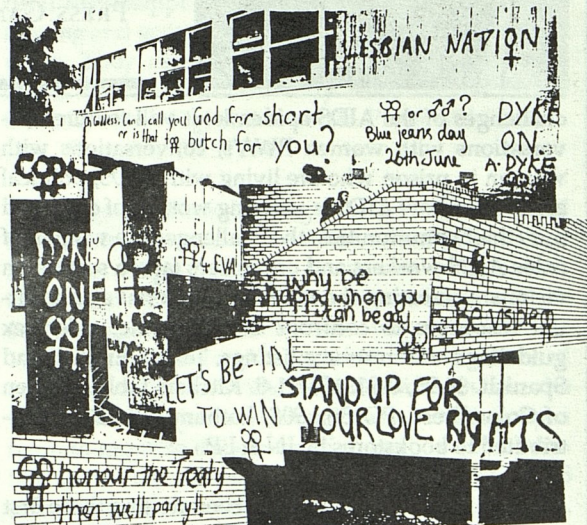 LESBIAN NATION
O Goddess, Can I call you God for short
or is that too butch for you?
⚢ or ⚣?
Blue jeans day
26th June
DYKE
ON
A. DYKE
COOL
DYKE
ON
⚢ 4 EVA
why be
happy when you
can be gay
Be visible
LET'S BE-IN
TO WIN
STAND UP FOR
YOUR LOVE RIGHTS
honour the Treaty
then we'll party!!